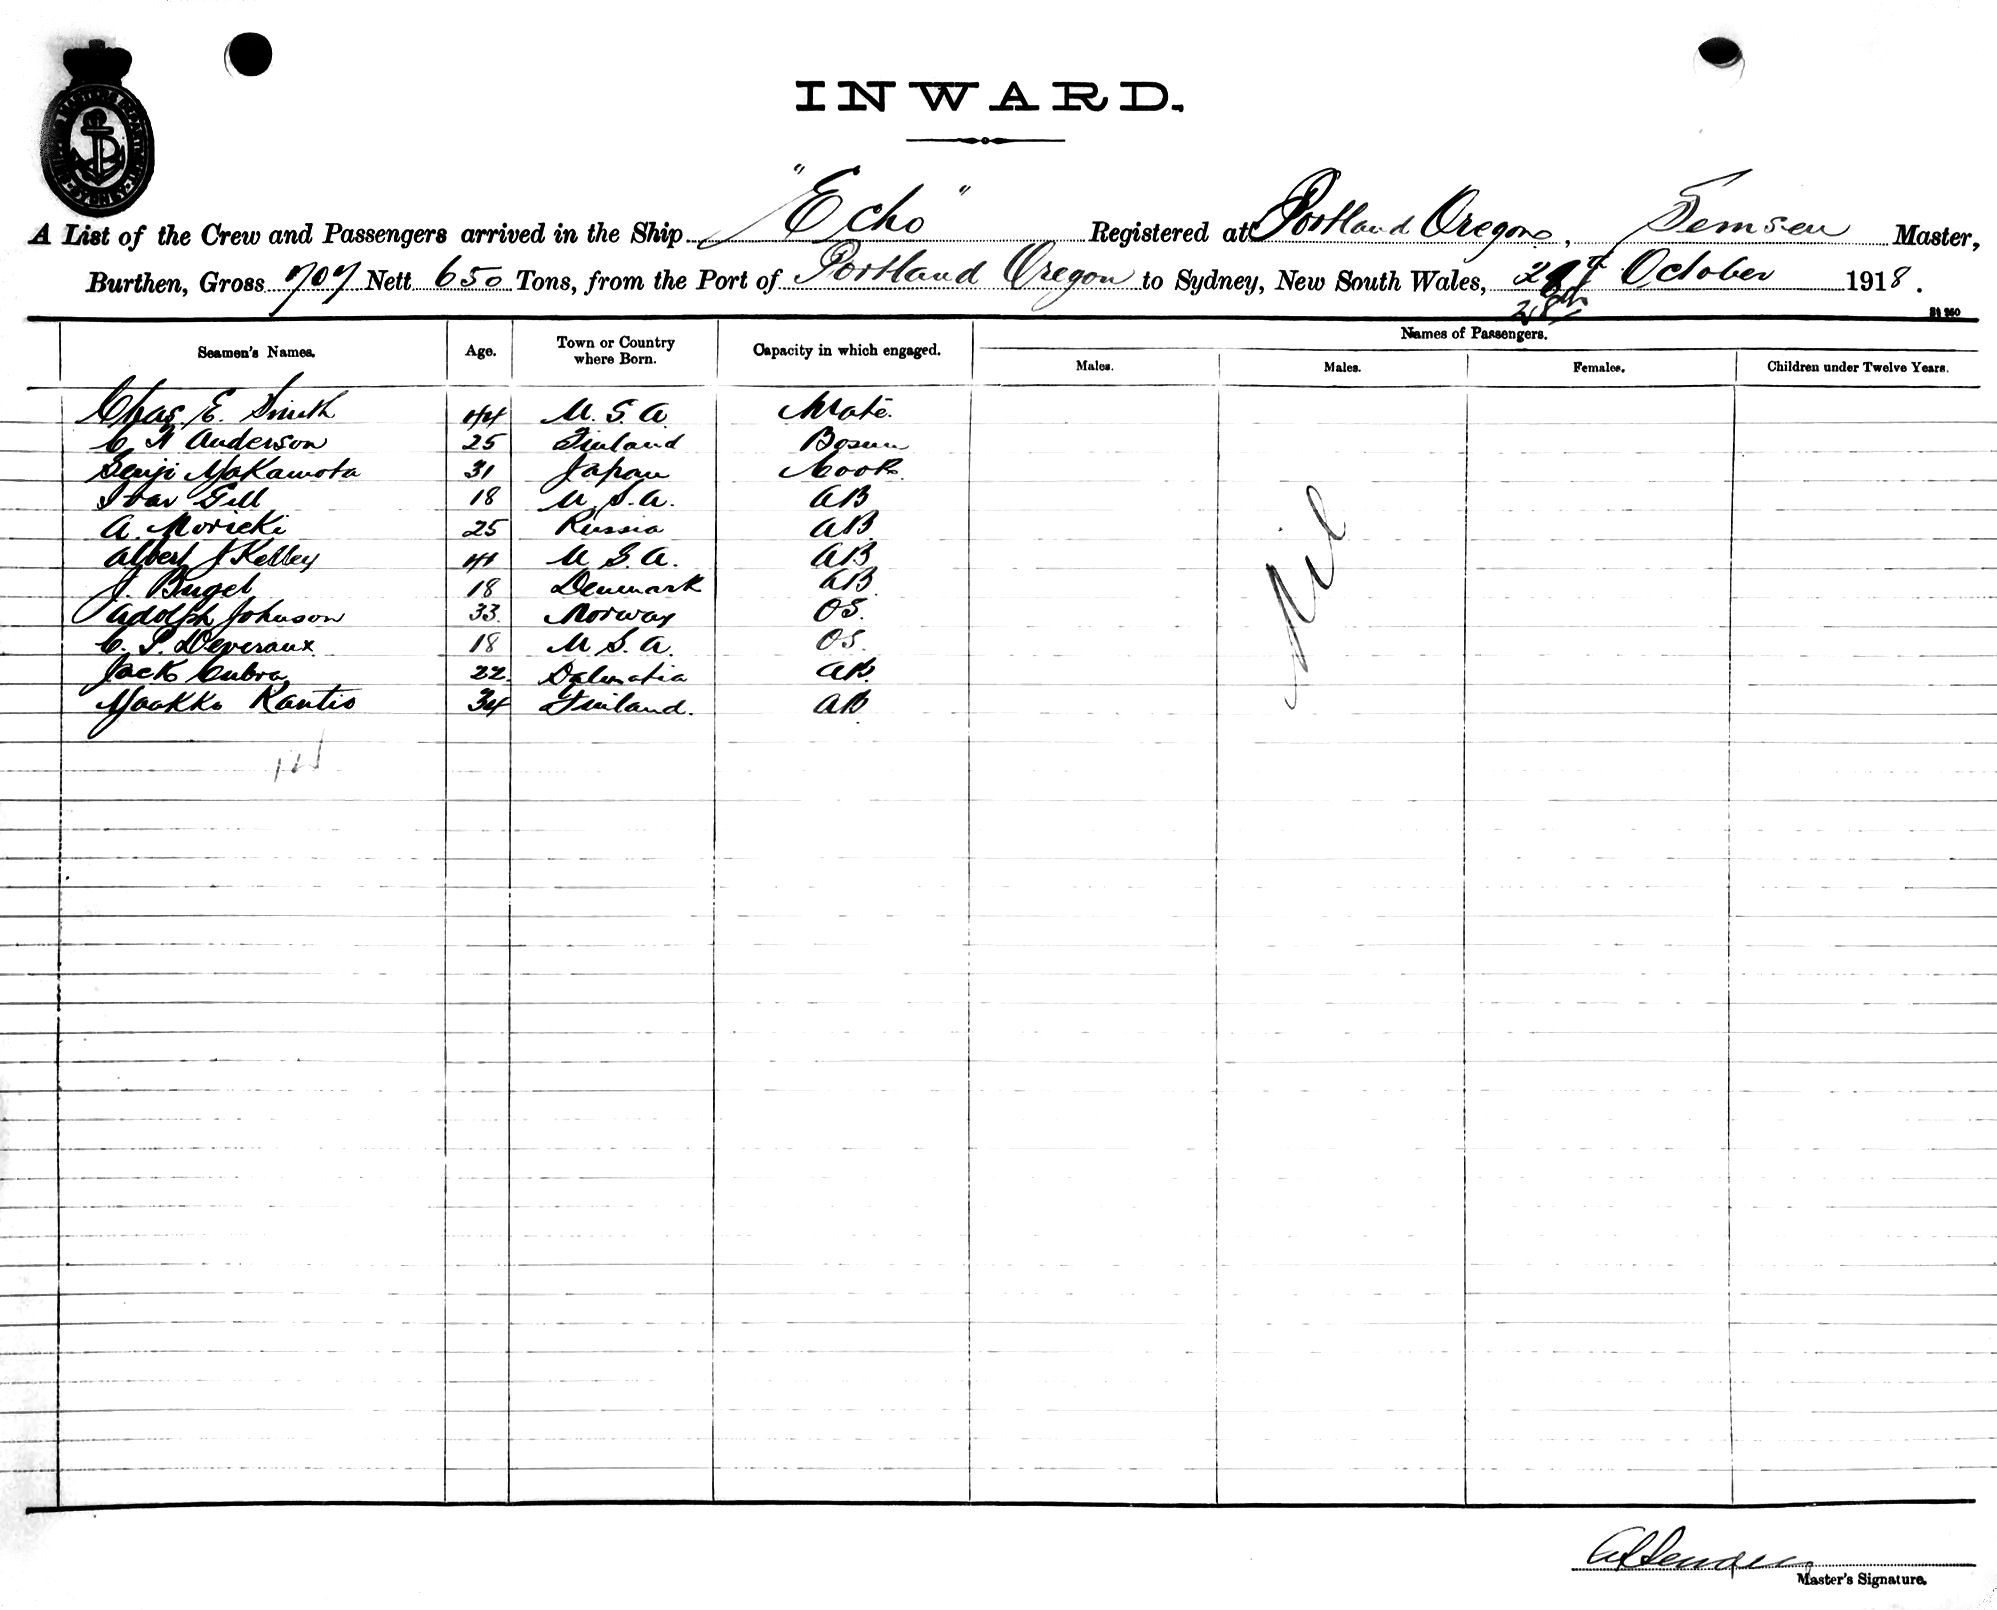 SHIPPING MASTERS DEPARTMENT SYDNEY
INWARD.
A List of the Crew and Passengers arrived in the Ship "Echo" Registered at Portland Oregon, Master,
Burthen, Gross 707 Nett 650 Tons, from the Port of Portland Oregon to Sydney, New South Wales, 28th October 1918.
Names of Passengers.
Seamen's Names. Age. Town or Country where Born. Capacity in which engaged. Males. Males. Females. Children under Twelve Years.
Chas. E. Smith 44 U.S.A. Mate.
C Anderson 25 Finland Bosun
Genji Yakamota 31 Japan Cook
Ivar Gill 18 U.S.A. AB
A. Moricki 25 Russia AB
Albert J Kelley 41 U.S.A. AB
J. 18 Denmark AB
Adolph Johnson 33 Norway OS.
C. P. Deveraux 18 U.S.A. OS.
Jack Cubra 22 Dalmatia AB.
Yaakko Rantio 34 Finland. AB
Nil
Master's Signature.